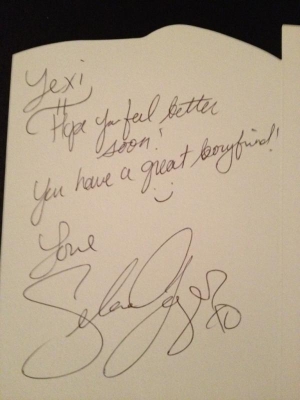 Lexi
Hope you feel better
soon!
You have a great boyfriend!
:)
Love
Selena Gomez
XO